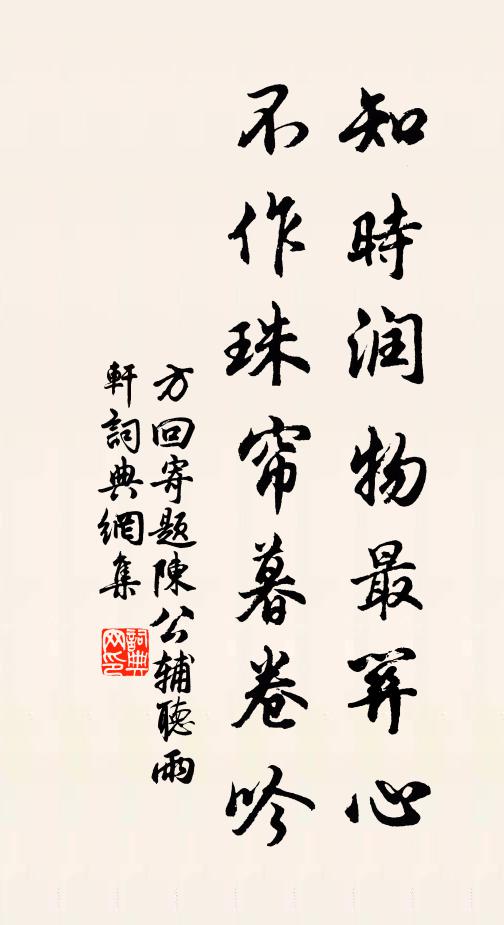 知時润物最關心
不作珠帘暮卷吟
方回寄题陳公辅聽雨
軒詞典網集
詞典
网印